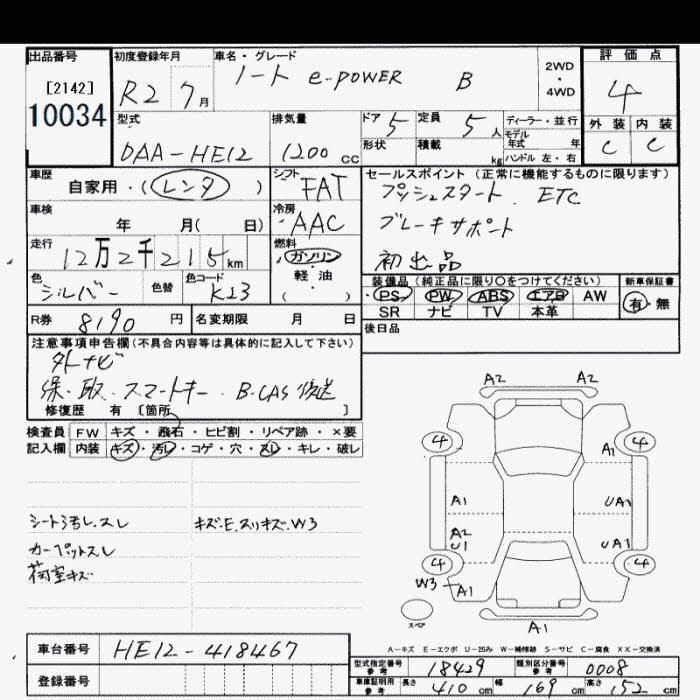 出品番号 初度登録年月 車名・グレード 評価点
[2142]
10034
R2 7月 ノート e-POWER B 2WD・4WD 4
型式 排気量 ドア 定員 ディーラー・並行 外装 内装
5 5人 モデル年式 年
DAA-HE12 1200cc 形状 積載 kg ハンドル 左・右 C C
車歴 シフト セールスポイント (正常に機能するものに限ります)
自家用・(レンタ) FAT プッシュスタート ETC
車検 冷房 ブレーキサポート
年 月( 日) AAC 初出品
走行 燃料
12万2千215km ガソリン・軽・油・( ) 装備品 (純正品に限り○をつけてください) 新車保証書
色 色替 色コード ・PS・PW・ABS・エアB・AW 有・無
シルバー K23 SR ナビ TV 本革
R券 8190円 名変期限 月 日 後日品
注意事項申告欄(不具合内容等は具体的に記入して下さい)
外ナビ
保・取・スマートキー・B-CAS後送
修復歴 有 [箇所 ]
検査員 FW キズ・飛石・ヒビ割・リペア跡・×要
記入欄 内装 キズ・汚レ・コゲ・穴・スレ・キレ・破レ
A2 A2
4 4
A1
A1 UA1
シート汚レ.スレ キズ.E.スリキズ.W3
A2
U1 UA1
カーペットスレ
荷室キズ
4 4
W3 A1
スペア
A1
車台番号 HE12-418467
A-キズ E-エクボ U-凹み W-補修跡 S-サビ C-腐食 XX-交換済
登録番号
型式指定番号 参考 18429 類別区分番号 参考 0008
車庫証明用 参考 長さ 410cm 幅 169cm 高さ 52cm